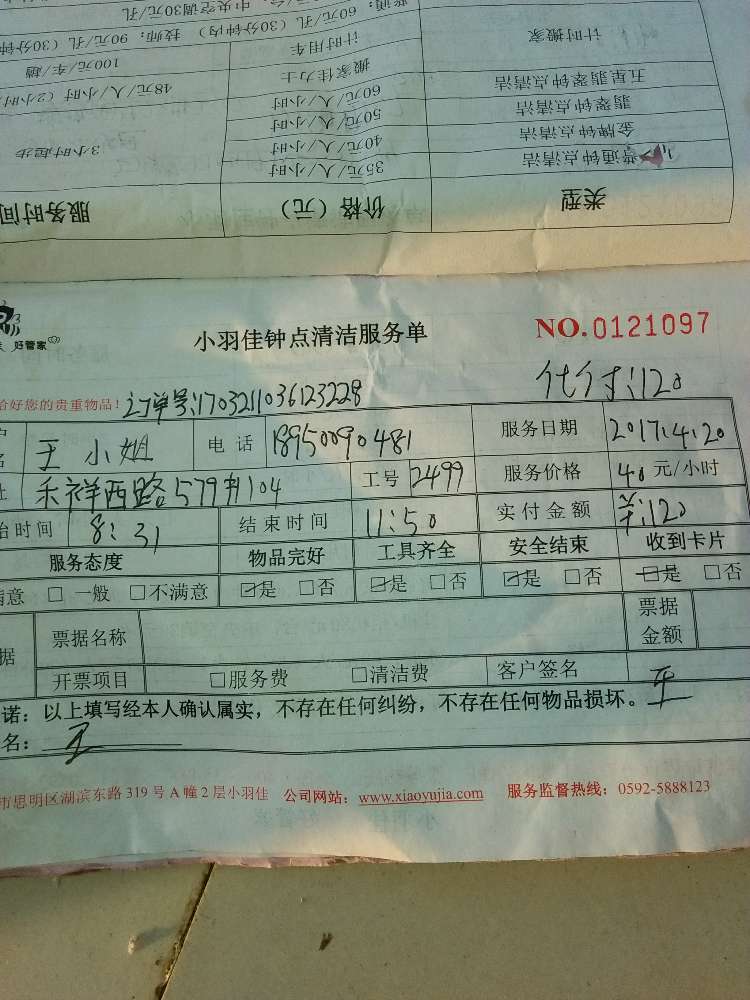 普通：60元/孔（30分钟内）技师：90元/孔（30分钟
中央空调30元/孔
计时搬家 计时用车 100元/车/趟
搬家佳力士 48元/人/小时（2小时
五星翡翠钟点清洁 60元/人/小时
翡翠钟点清洁 50元/人/小时
金牌钟点清洁 40元/人/小时
普通钟点清洁 35元/人/小时
3小时起步
类型 价格（元） 服务时间
好管家
小羽佳钟点清洁服务单 NO.0121097
代付:120
恰好您的贵重物品！订单号:1703211036123228
王小姐 电话 18950090481 服务日期 2017.4.20
禾祥西路579#104 工号 2499 服务价格 40元/小时
始时间 8:31 结束时间 11:50 实付金额 ¥:120
服务态度 物品完好 工具齐全 安全结束 收到卡片
满意 □一般 □不满意 ☑是 □否 ☑是 □否 ☑是 □否 ☑是 □否
据 票据名称 票据金额
开票项目 □服务费 □清洁费 客户签名 王
诺：以上填写经本人确认属实，不存在任何纠纷，不存在任何物品损坏。
名：王
市思明区湖滨东路319号A幢2层小羽佳 公司网站：www.xiaoyujia.com 服务监督热线：0592-5888123